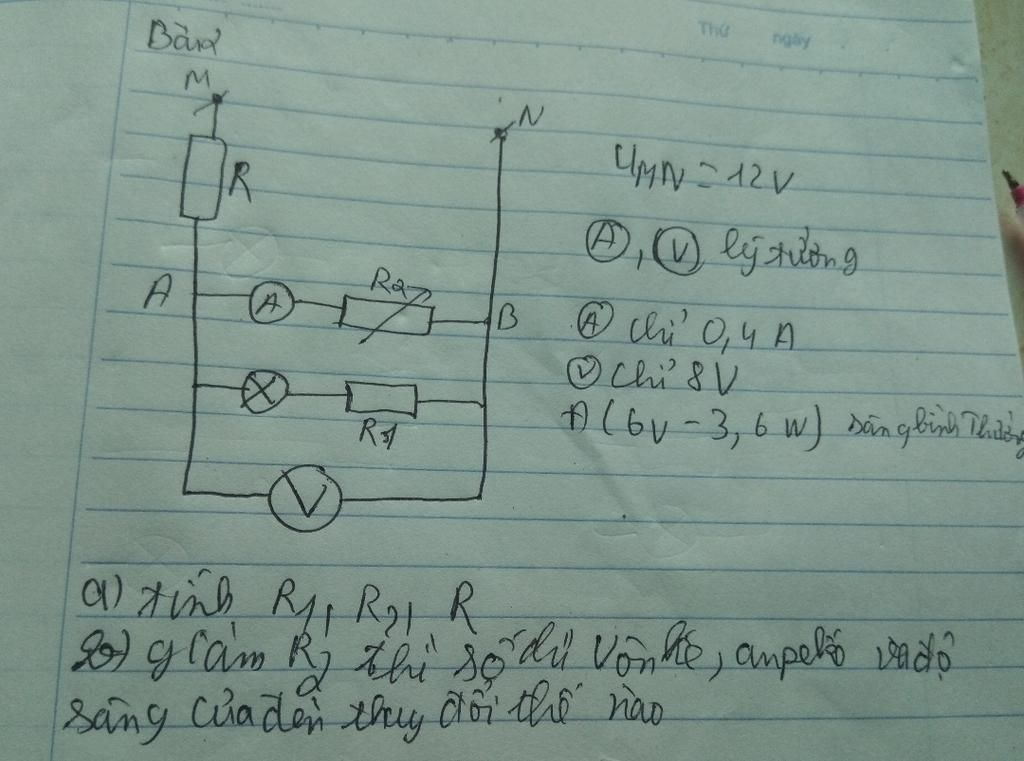 Bài 2
Thứ ngày
M
N
R
U_MN = 12V
A, V lý tưởng
A
A
R2
B
A chỉ 0,4 A
V chỉ 8V
R1
Đ (6V - 3,6W) sáng bình thường
V
a) tính R1, R2, R
b) giảm R2 thì số chỉ Vôn kế, ampe kế và độ
sáng của đèn thay đổi thế nào